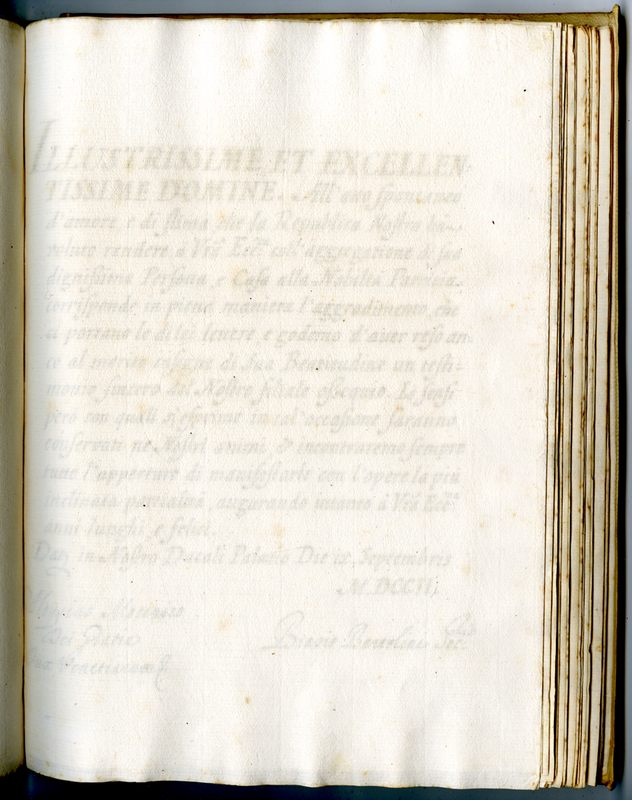 ILLUSTRISSIME ET EXCELLEN-
TISSIME DOMINE. All'atto spontaneo
d'amore, e di stima che la Republica Nostra hà
voluto rendere à Vrã Eccã coll'aggregatione di sua
dignissima Persona, e Casa alla Nobiltà Patricia.
Corrisponde in piena maniera l'aggradimento, che
ci portano le di lei lettere, e godemo d'aver reso an-
co al merito insigne di Sua Beatitudine un testi-
monio sincero del Nostro filiale ossequio. Le sensi
però con quali s'esprime in tal'occasione saranno
conservati ne Nostri animi, & incontraremo sempre
tutte l'apperture di manifestarle con l'opere la più
inclinata partialità, augurando intanto à Vrã Eccã
anni lunghi, e felici.
Dat in Nostro Ducali Palatio Die ix Septembris
M.DCCII
Aloysius Mocenico
Dei Gratia
Dux Venetiarum &
Sec.